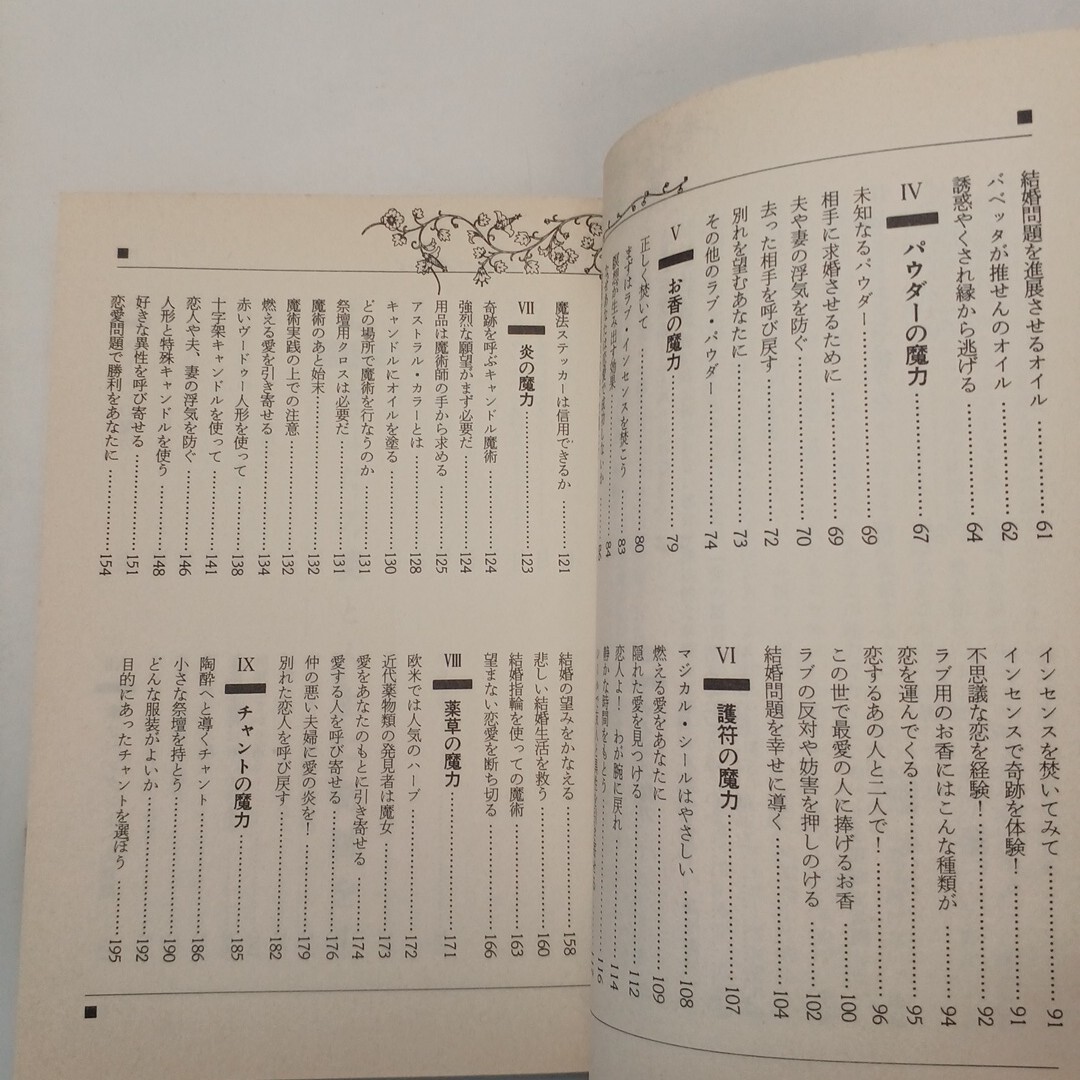 結婚問題を進展させるオイル……61
ババッタが推せんのオイル……62
誘惑やくされ縁から逃げる……64
Ⅳ パウダーの魔力……67
未知なるパウダー……69
相手に求婚させるために……69
夫や妻の浮気を防ぐ……70
去った相手を呼び戻す……72
別れを望むあなたに……73
その他のラブ・パウダー……74
Ⅴ お香の魔力……79
正しく焚いて……80
まずはラブ・インセンスを焚こう……83
瞑想が生み出す効果……84
インセンスを焚いてみて……91
インセンスで奇跡を体験！……91
不思議な恋を経験！……92
ラブ用のお香にはこんな種類が……94
恋を運んでくる……95
恋するあの人と二人で！……96
この世で最愛の人に捧げるお香……100
ラブの反対や妨害を押しのける……102
結婚問題を幸せに導く……104
Ⅵ 護符の魔力……107
マジカル・シールはやさしい……108
燃える愛をあなたに……109
隠れた愛を見つける……112
恋人よ！わが腕に戻れ……114
静かな時間をもとう……116
魔法ステッカーは信用できるか……121
Ⅶ 炎の魔力……123
奇跡を呼ぶキャンドル魔術……124
強烈な願望がまず必要だ……124
用品は魔術師の手から求める……125
アストラル・カラーとは……128
キャンドルにオイルを塗る……130
どの場所で魔術を行なうのか……131
祭壇用クロスは必要だ……131
魔術のあと始末……132
魔術実践の上での注意……132
燃える愛を引き寄せる……134
赤いヴードゥー人形を使って……138
十字架キャンドルを使って……141
恋人や夫、妻の浮気を防ぐ……146
人形と特殊キャンドルを使う……148
好きな異性を呼び寄せる……151
恋愛問題で勝利をあなたに……154
結婚の望みをかなえる……158
悲しい結婚生活を救う……160
結婚指輪を使っての魔術……163
望まない恋愛を断ち切る……166
Ⅷ 薬草の魔力……171
欧米では人気のハーブ……172
近代薬物類の発見者は魔女……173
愛をあなたのもとに引き寄せる……174
愛する人を呼び寄せる……176
仲の悪い夫婦に愛の炎を！……179
別れた恋人を呼び戻す……182
Ⅸ チャントの魔力……185
陶酔へと導くチャント……186
小さな祭壇を持とう……190
どんな服装がよいか……192
目的にあったチャントを選ぼう……195